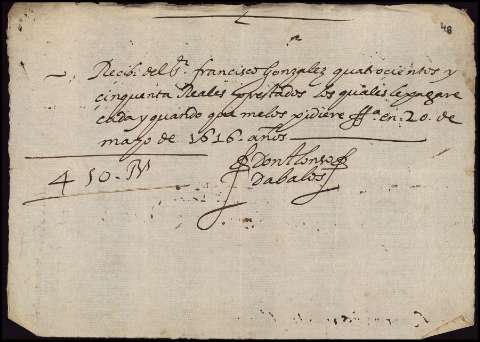 48
Recibi del Sr. francisco Gonzalez quatrocientos y
cinquenta Reales prestados los quales le pagare
cada y quando que me los pidiere ffa en. 20. de
mayo de 1616. años
450. Rs
Don Alonso
Dabalos